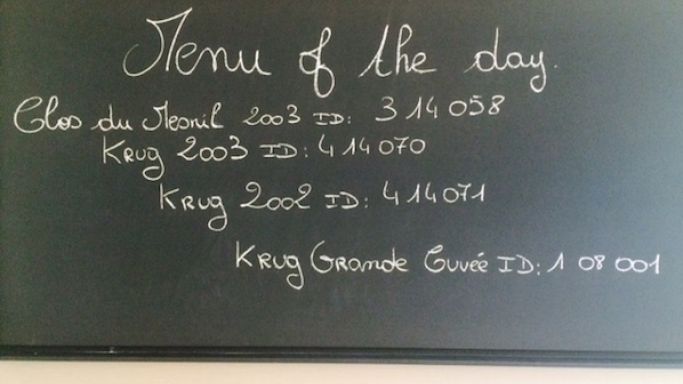 Menu of the day.
Clos du Mesnil 2003 ID: 314058
KRUG 2003 ID: 414070
KRUG 2002 ID: 414071
KRUG GRANDE Cuvée ID: 108001